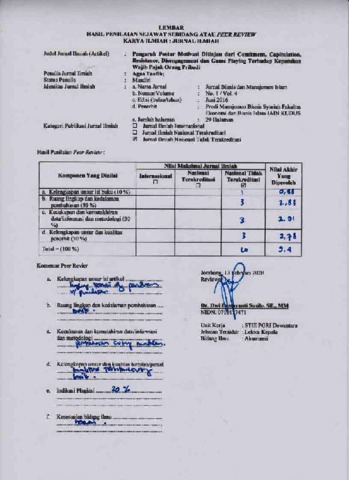 LEMBAR
HASIL PENILAIAN SEJAWAT SEBIDANG ATAU PEER REVIEW
KARYA ILMIAH : JURNAL ILMIAH
Judul Jurnal Ilmiah (Artikel) : Pengaruh Postur Motivasi Ditinjau dari Comitment, Capitulation,
Resistance, Disengangement dan Game Playing Terhadap Kepatuhan
Wajib Pajak Orang Pribadi
Penulis Jurnal Ilmiah : Agus Taufik;
Status Penulis : Mandiri
Identitas Jurnal Ilmiah : a. Nama Jurnal : Jurnal Bisnis dan Manajemen Islam
b. Nomor/Volume : No. 1 / Vol. 4
c. Edisi (bulan/tahun) : Juni 2016
d. Penerbit : Prodi Manajemen Bisnis Syariah Fakultas
Ekonomi dan Bisnis Islam IAIN KUDUS
e. Jumlah halaman : 29 Halaman
Kategori Publikasi Jurnal Ilmiah : Jurnal Ilmiah Internasional
Jurnal Ilmiah Nasional Terakreditasi
Jurnal Ilmiah Nasional Tidak Terakreditasi
Hasil Penilaian Peer Review :
Komponen Yang Dinilai
Nilai Maksimal Jurnal Ilmiah
Internasional
Nasional Terakreditasi
Nasional Tidak Terakreditasi
Nilai Akhir Yang Diperoleh
a. Kelengkapan unsur isi buku (10 %)
b. Ruang lingkup dan kedalaman pembahasan (30 %) 3
c. Kecukupan dan kemutahiran data/informasi dan metodologi (30 %) 3
d. Kelengkapan unsur dan kualitas penerbit (30 %) 3 2,78
Total = (100 %) 10 9.4
Komentar Peer Review
Jombang, Februari 2020
Reviewer
a. Kelengkapan unsur isi artikel
b. Ruang lingkup dan kedalaman pembahasan
baik.
c. Kecukupan dan kemutahiran data/informasi
dan metodologi
d. Kelengkapan unsur dan kualitas
baik.
e. Indikasi Plagiasi 20 %
f. Kesesuaian bidang ilmu
SE., MM
NIDN.
Unit Kerja : STIE PGRI Dewantara
Jabatan Terakhir : Lektor Kepala
Bidang Ilmu : Akuntansi